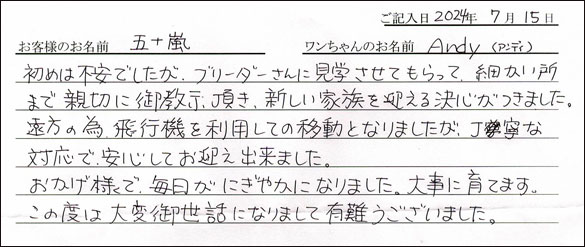 ご記入日 2024年 7月 15日
お客様のお名前 五十嵐 ワンちゃんのお名前 Andy (アンディ)
初めは不安でしたが、ブリーダーさんに見学させてもらって、細かい所
まで親切に御教示、頂き、新しい家族を迎える決心がつきました。
遠方の為、飛行機を利用しての移動となりましたが、丁寧な
対応で、安心してお迎え出来ました。
おかげ様で、毎日がにぎやかになりました。大事に育てます。
この度は大変御世話になりまして有難うございました。